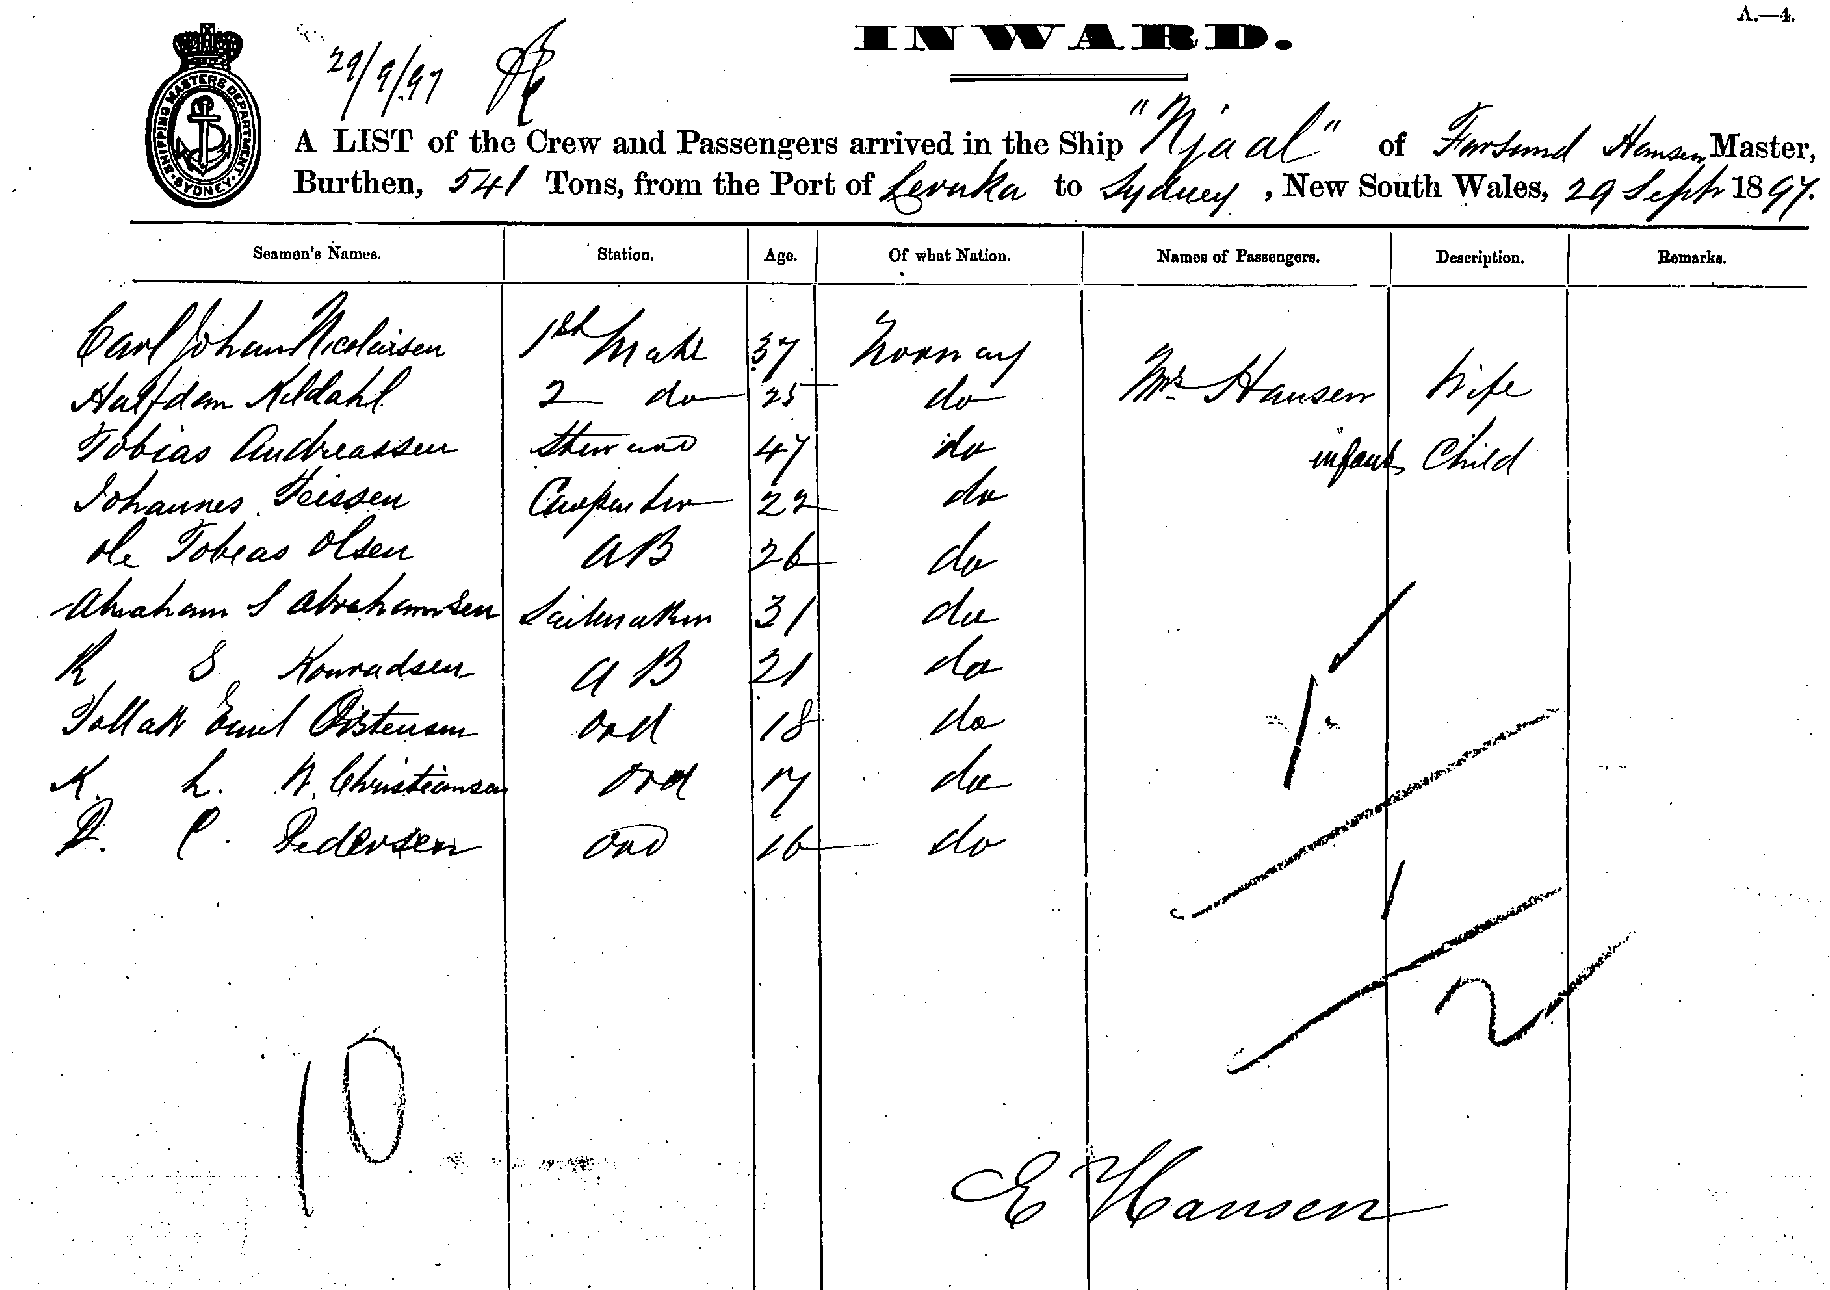 A.—4.
INWARD.
29/9/97
SHIPPING MASTERS DEPARTMENT SYDNEY
A LIST of the Crew and Passengers arrived in the Ship "Njaal" of Farsund Hansen Master,
Burthen, 541 Tons, from the Port of Levuka to Sydney, New South Wales, 29 Sept 1897.
Seamen's Names. Station. Age. Of what Nation. Names of Passengers. Description. Remarks.
Carl Johan Nicolaisen 1st Mate 37 Norway
Halfdan Kildahl 2 do 25 do Mrs Hansen Wife
Tobias Andreassen Steward 47 do infant Child
Johannes Feissen Carpenter 22 do
Ole Tobias Olsen AB 26 do
Abraham S Abrahamsen Sailmaker 31 do
R S Konradsen AB 21 do
Tollak Emil ord 18 do
K. L. N. Christiansen ord 17 do
P. C. Pedersen ord 16 do
1
1
2
10
E Hansen